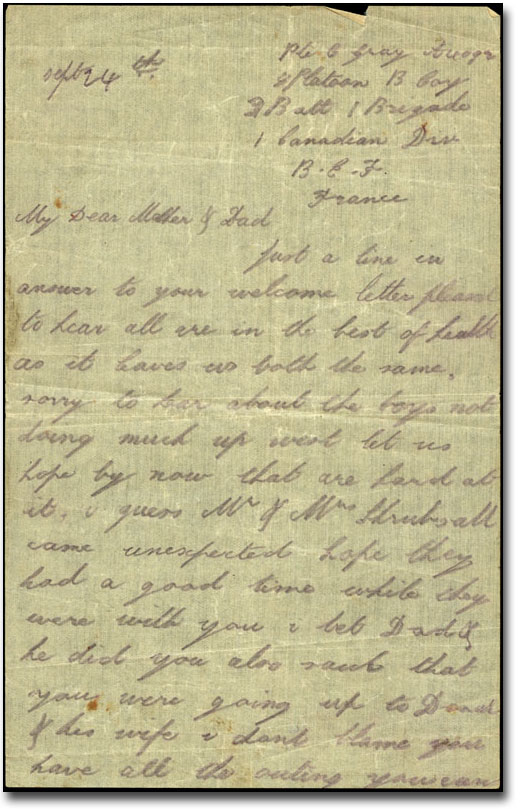 Sept 24th
Pte C Gray
Platoon B Coy
Batt 1 Brigade
1 Canadian Div
B.E.F.
France
My Dear Mother & Dad
Just a line in
answer to your welcome letter pleased
to hear all are in the best of health
as it leaves us both the same,
sorry to hear about the boys not
doing much up west let us
hope by now that are hard at
it. i guess Mr & Mrs Shrubsall
came unexpected hope they
had a good time while they
were with you i bet Dad &
he did you also said that
you were going up to
& his wife i dont blame you
have all the outing you can